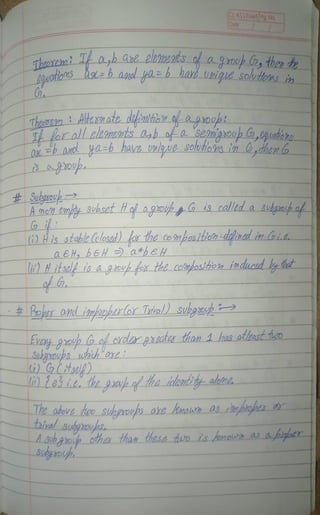 Theorem: If a,b are elements of a group G, then the
equations ax=b and ya=b have unique solutions in
G.
Theorem: Alternate definition of a group:
If for all elements a,b of a semigroup G, equations
ax=b and ya=b have unique solutions in G, then G
is a group.
# Subgroup →
A non empty subset H of a group G is called a subgroup of
G if:
(i) H is stable (closed) for the composition defined in G i.e.
a∈H, b∈H ⇒ a*b∈H
(ii) H itself is a group for the composition induced by that
of G.
# Proper and improper (or Trival) subgroup:→
Every group G of order greater than 1 has atleast two
subgroups which are:
(i) G (itself)
(ii) {e} i.e. the group of the identity alone.
The above two subgroups are known as improper or
trival subgroups.
A subgroup other than these two is known as a proper
subgroup.